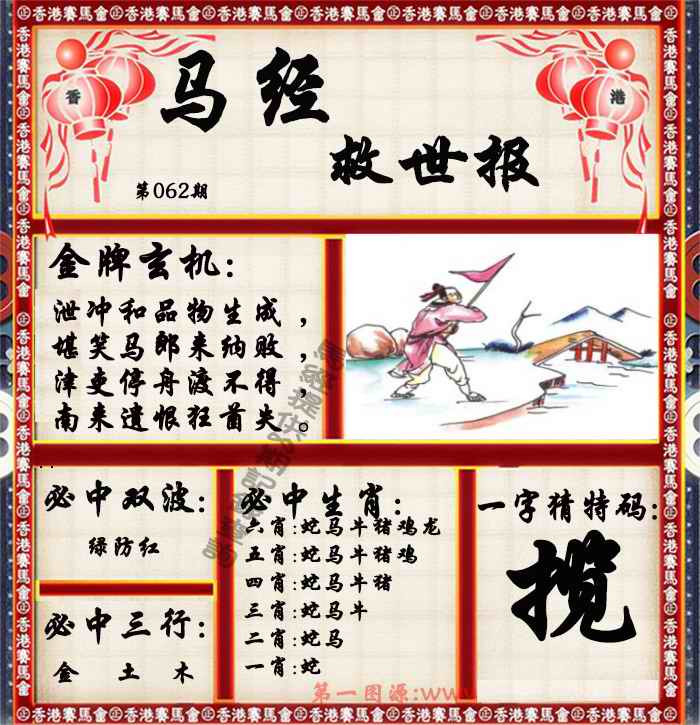 香港賽馬會
香
港
马经
救世报
第062期
金牌玄机:
泄冲和品物生成，
堪笑马郎来纳败，
津吏停舟渡不得，
南来遗恨狂酋失。
必中双波:
绿防红
必中三行:
金 土 木
必中生肖:
六肖:蛇马牛猪鸡龙
五肖:蛇马牛猪鸡
四肖:蛇马牛猪
三肖:蛇马牛
二肖:蛇马
一肖:蛇
一字猜特码:
揽
第一图源:www